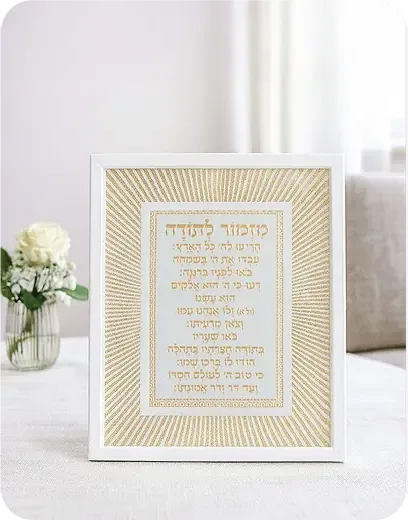 מזמור לתודה
הריעו לה׳ כל הארץ:
עבדו את ה׳ בשמחה
באו לפניו ברננה:
דעו כי ה׳ הוא אלקים
הוא עשנו
(ולא) ולו אנחנו עמו
וצאן מרעיתו:
באו שעריו
בתודה חצרתיו בתהלה
הודו לו ברכו שמו:
כי טוב ה׳ לעולם חסדו
ועד דר ודר אמונתו: